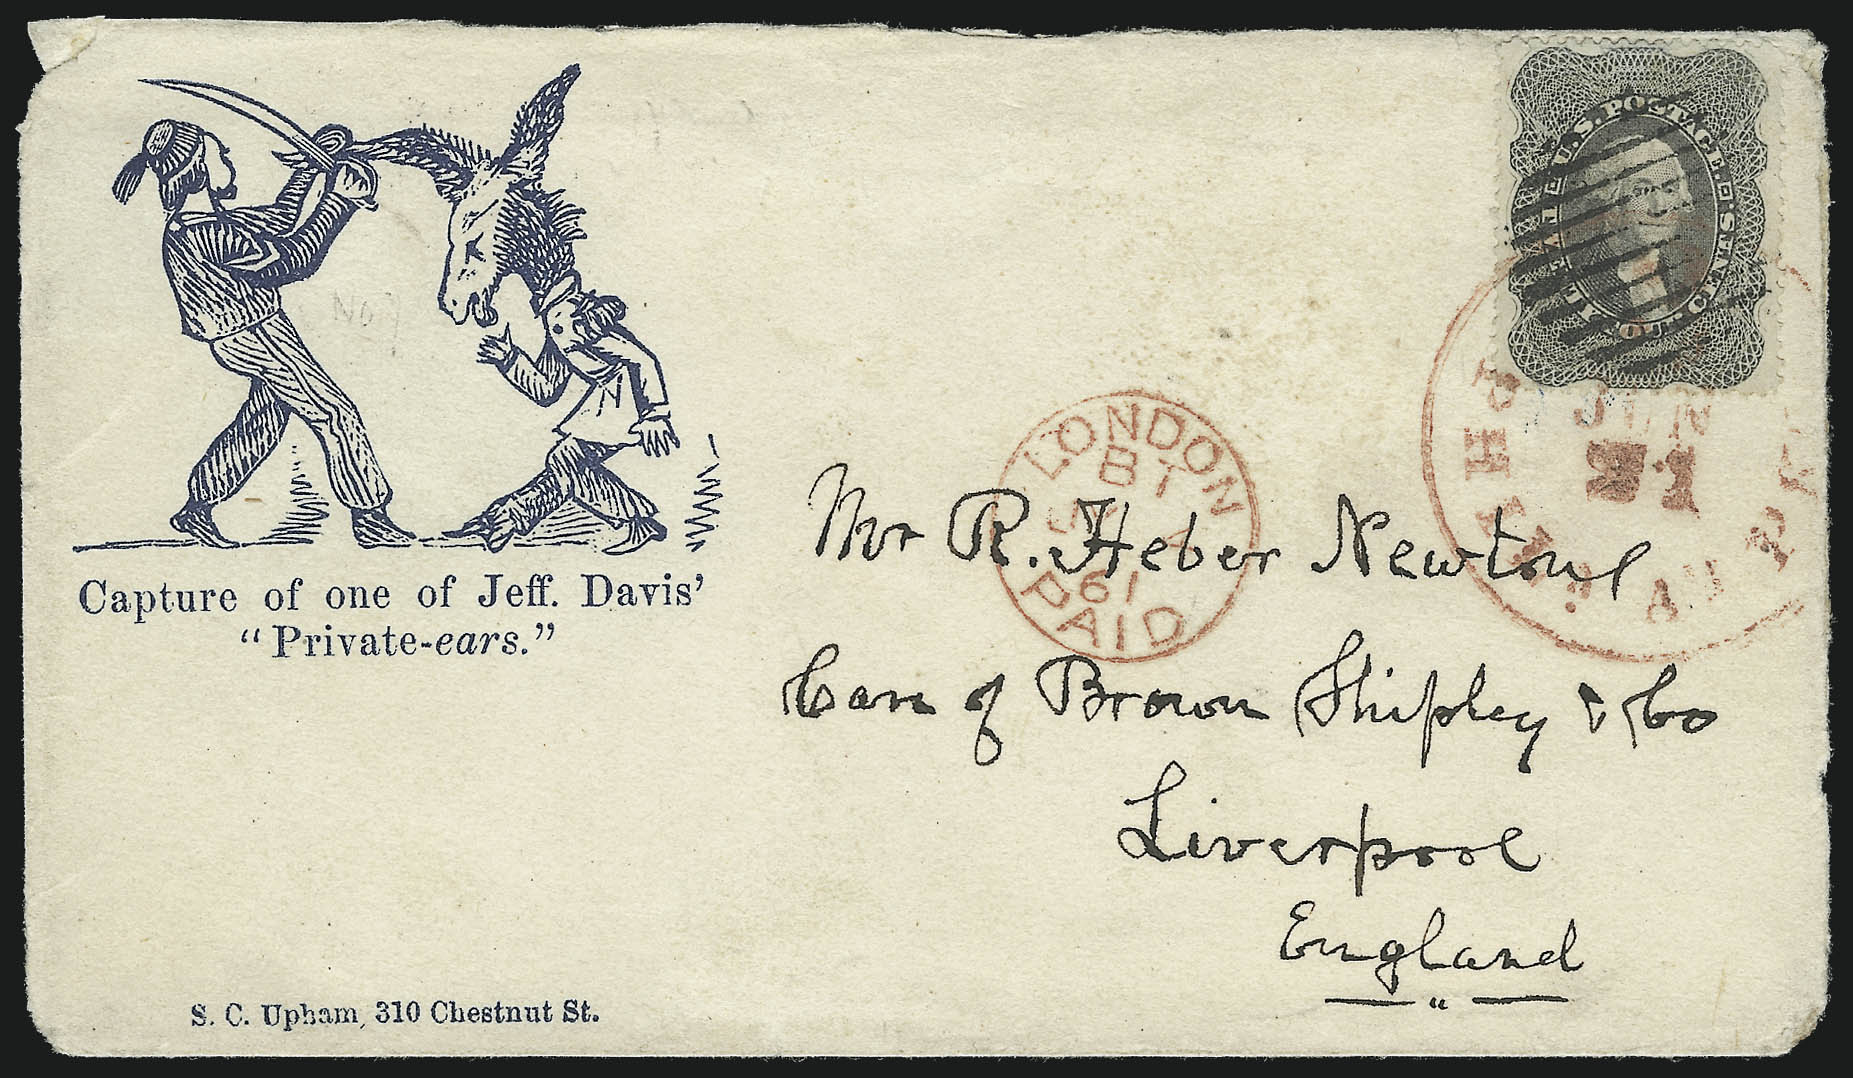 Capture of one of Jeff. Davis'
"Private-ears."
S. C. Upham, 310 Chestnut St.
U.S. POSTAGE.
CENTS.
LONDON
61
PAID
PHILA
AM. PKT
21
N
Mr R. Heber Newton
Care of Brown Shipley & Co
Liverpool
England